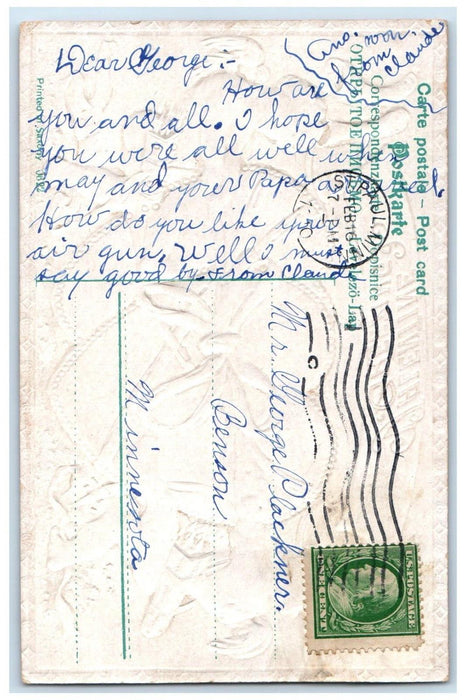 Dear George:-
How are
you and all. I hope
you were all well
may and your Papa as
How do you like your
air gun, Well I must
say good by From Claude
Ans.
soon.
from
Claude
Carte postale – Post card
Postkarte
Correspondenz
Printed in Saxony
ST. PAUL, MINN.
FEB 16
Mr. George Plackner.
Benson
Minnesota
U.S. POSTAGE